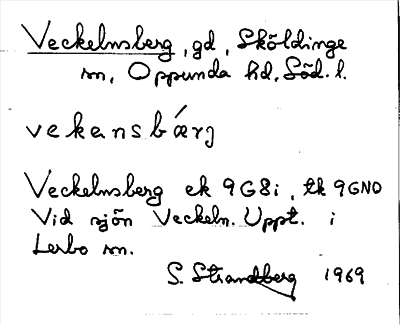 Veckelnsberg, gd, Sköldinge
sn, Oppunda hd, Söd. l.
vekansbǽrj
Veckelnsberg ek 9G8i, tk 9GNO
Vid sjön Veckeln. Uppt. i
Lerbo sn.
S. Strandberg 1969